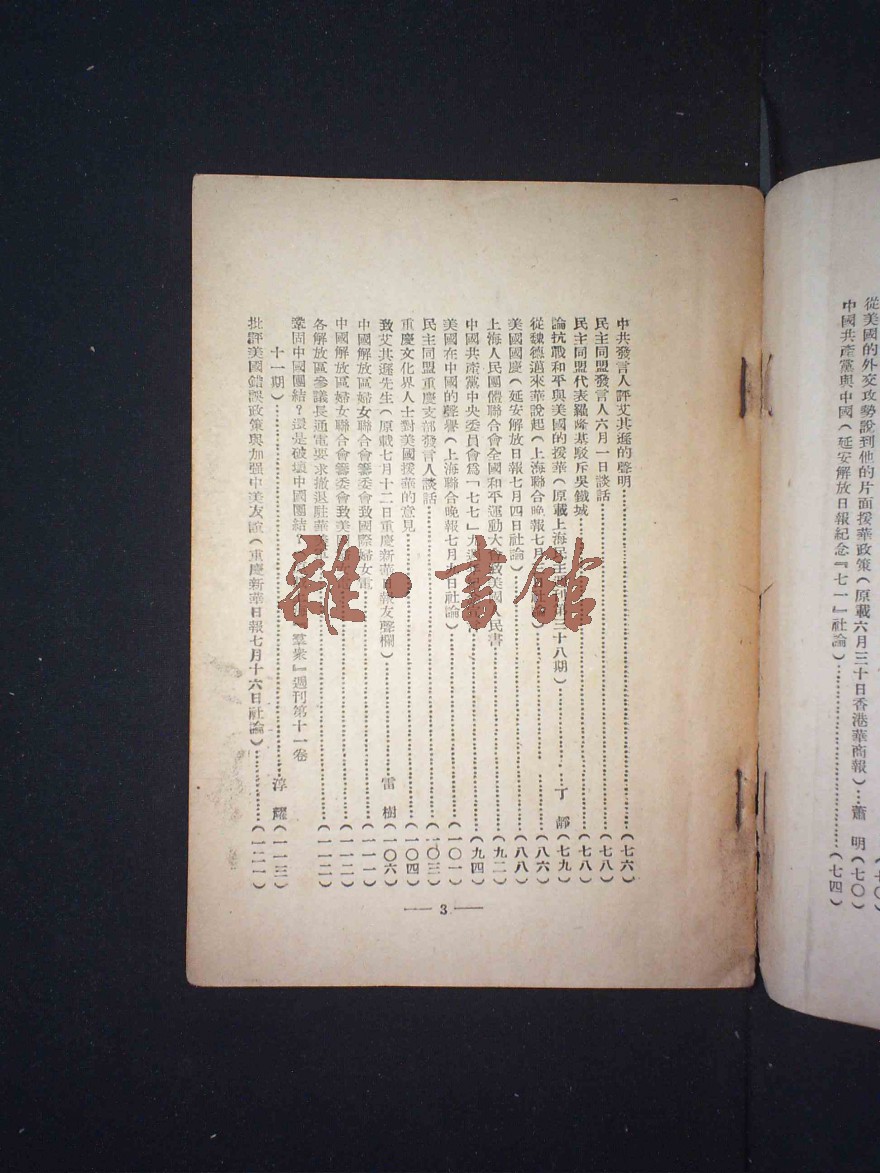 從美國的外交攻勢說到他的片面援華政策(原載六月三十日香港華商報)…蕭 明(七〇)
中國共產黨與中國(延安解放日報紀念『七一』社論)……(七四)
中共發言人評艾其遜的聲明……(七六)
民主同盟發言人六月一日談話……(七八)
民主同盟代表羅隆基駁斥吳鐵城……(七八)
論抗戰和平與美國的援華(原載上海民主週刊第三十八期)……丁 靜(七九)
從魏德邁來華說起(上海聯合晚報七月……(八六)
美國國慶(延安解放日報七月四日社論)……(八八)
上海人民團體聯合會全國和平運動大會致美國人民書……(九二)
中國共產黨中央委員會爲「七七」九週……(九四)
美國在中國的聲譽(上海聯合晚報七月九日社論)……(一〇一)
民主同盟重慶支部發言人談話……(一〇三)
重慶文化界人士對美國援華的意見……(一〇四)
致艾其遜先生(原載七月十二日重慶新華日報友聲欄)……雷 樹(一〇六)
中國解放區婦女聯合會籌委會致國際婦女電……(一一一)
中國解放區婦女聯合會籌委會致美……(一一二)
各解放區參議長通電要求撤退駐華……(一一二)
鞏固中國團結?還是破壞中國團結?羣衆』週刊第十一卷
十一期)……淳 耀(一一三)
批評美國錯誤政策與加强中美友誼(重慶新華日報七月十六日社論)……(一二一)
— 3 —
雜·書館